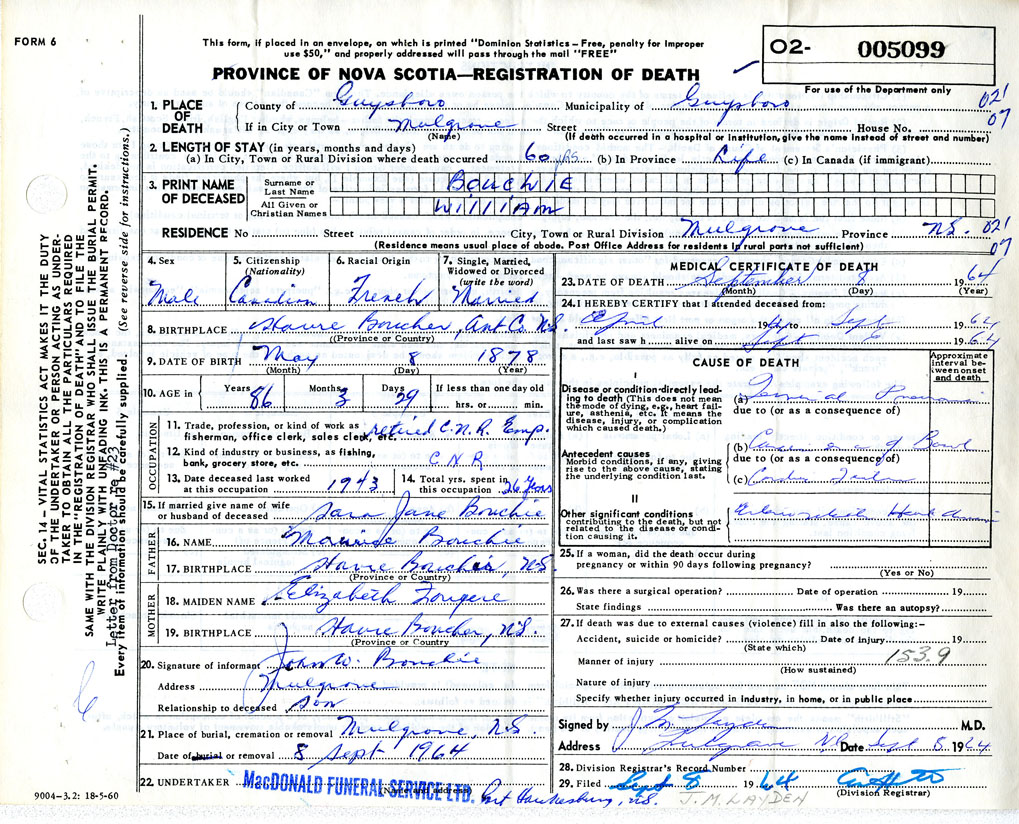 FORM 6
This form, if placed in an envelope, on which is printed "Dominion Statistics – Free, penalty for improper
use $50," and properly addressed will pass through the mail "FREE"
PROVINCE OF NOVA SCOTIA—REGISTRATION OF DEATH
02- 005099
For use of the Department only
021
07
1. PLACE OF DEATH
County of Guysboro Municipality of Guysboro
If in City or Town Mulgrave Street House No.
(Name) (If death occurred in a hospital or institution, give the name instead of street and number)
2. LENGTH OF STAY (in years, months and days)
(a) In City, Town or Rural Division where death occurred 60 yrs. (b) In Province Life (c) In Canada (if immigrant)
3. PRINT NAME OF DECEASED
Surname or Last Name BOUCHIE
All Given or Christian Names WILLIAM
RESIDENCE No Street City, Town or Rural Division Mulgrave Province N.S. 021
07
(Residence means usual place of abode. Post Office Address for residents in rural parts not sufficient)
4. Sex Male
5. Citizenship (Nationality) Canadian
6. Racial Origin French
7. Single, Married, Widowed or Divorced (write the word) Married
8. BIRTHPLACE Havre Boucher, Ant. Co. N.S.
(Province or Country)
9. DATE OF BIRTH May 8 1878
(Month) (Day) (Year)
10. AGE in Years 86 Months 3 Days 29 If less than one day old hrs. or min.
OCCUPATION
11. Trade, profession, or kind of work as fisherman, office clerk, sales clerk, etc. retired C.N.R. Emp.
12. Kind of industry or business, as fishing, bank, grocery store, etc. CNR
13. Date deceased last worked at this occupation 1943
14. Total yrs. spent in this occupation 26 Years
15. If married give name of wife or husband of deceased Sara Jane Bouchie
FATHER
16. NAME Bouchie
17. BIRTHPLACE Havre Boucher, N.S.
(Province or Country)
MOTHER
18. MAIDEN NAME Elizabeth Fougere
19. BIRTHPLACE Havre Boucher, N.S.
(Province or Country)
20. Signature of informant John W. Bouchie
Address Mulgrave
Relationship to deceased son
21. Place of burial, cremation or removal Mulgrave, N.S.
Date of burial or removal 8 Sept 1964
22. UNDERTAKER MacDONALD FUNERAL SERVICE LTD. Port Hawkesbury, N.S.
(Name and address)
9004-3.2: 18-5-60
MEDICAL CERTIFICATE OF DEATH
23. DATE OF DEATH September 8 1964
(Month) (Day) (Year)
24. I HEREBY CERTIFY that I attended deceased from:
April 1964 to Sept 1964
and last saw h alive on Sept 1964
CAUSE OF DEATH
Approximate interval between onset and death
I
Disease or condition directly leading to death (This does not mean the mode of dying, e.g., heart failure, asthenia, etc. It means the disease, injury, or complication which caused death.)
(a) Terminal
due to (or as a consequence of)
Antecedent causes
Morbid conditions, if any, giving rise to the above cause, stating the underlying condition last.
(b) of Bowel
due to (or as a consequence of)
(c)
II
Other significant conditions
contributing to the death, but not related to the disease or condition causing it.
25. If a woman, did the death occur during
pregnancy or within 90 days following pregnancy?
(Yes or No)
26. Was there a surgical operation? Date of operation 19
State findings Was there an autopsy?
27. If death was due to external causes (violence) fill in also the following:–
Accident, suicide or homicide? Date of injury 19
(State which)
153.9
Manner of injury
(How sustained)
Nature of injury
Specify whether injury occurred in industry, in home, or in public place
Signed by J M Layden M.D.
Address Mulgrave N.S. Date Sept 8, 1964
28. Division Registrar's Record Number
29. Filed Sept 8 1964
(Division Registrar)
J. M. LAYDEN
SEC. 14 — VITAL STATISTICS ACT MAKES IT THE DUTY
OF THE UNDERTAKER OR PERSON ACTING AS UNDER-
TAKER TO OBTAIN ALL THE PARTICULARS REQUIRED
IN THE "REGISTRATION OF DEATH" AND TO FILE THE
SAME WITH THE DIVISION REGISTRAR WHO SHALL ISSUE THE BURIAL PERMIT.
WRITE PLAINLY WITH UNFADING INK. THIS IS A PERMANENT RECORD.
Letter from Doctor re #23
Every item of information should be carefully supplied. (See reverse side for instructions.)